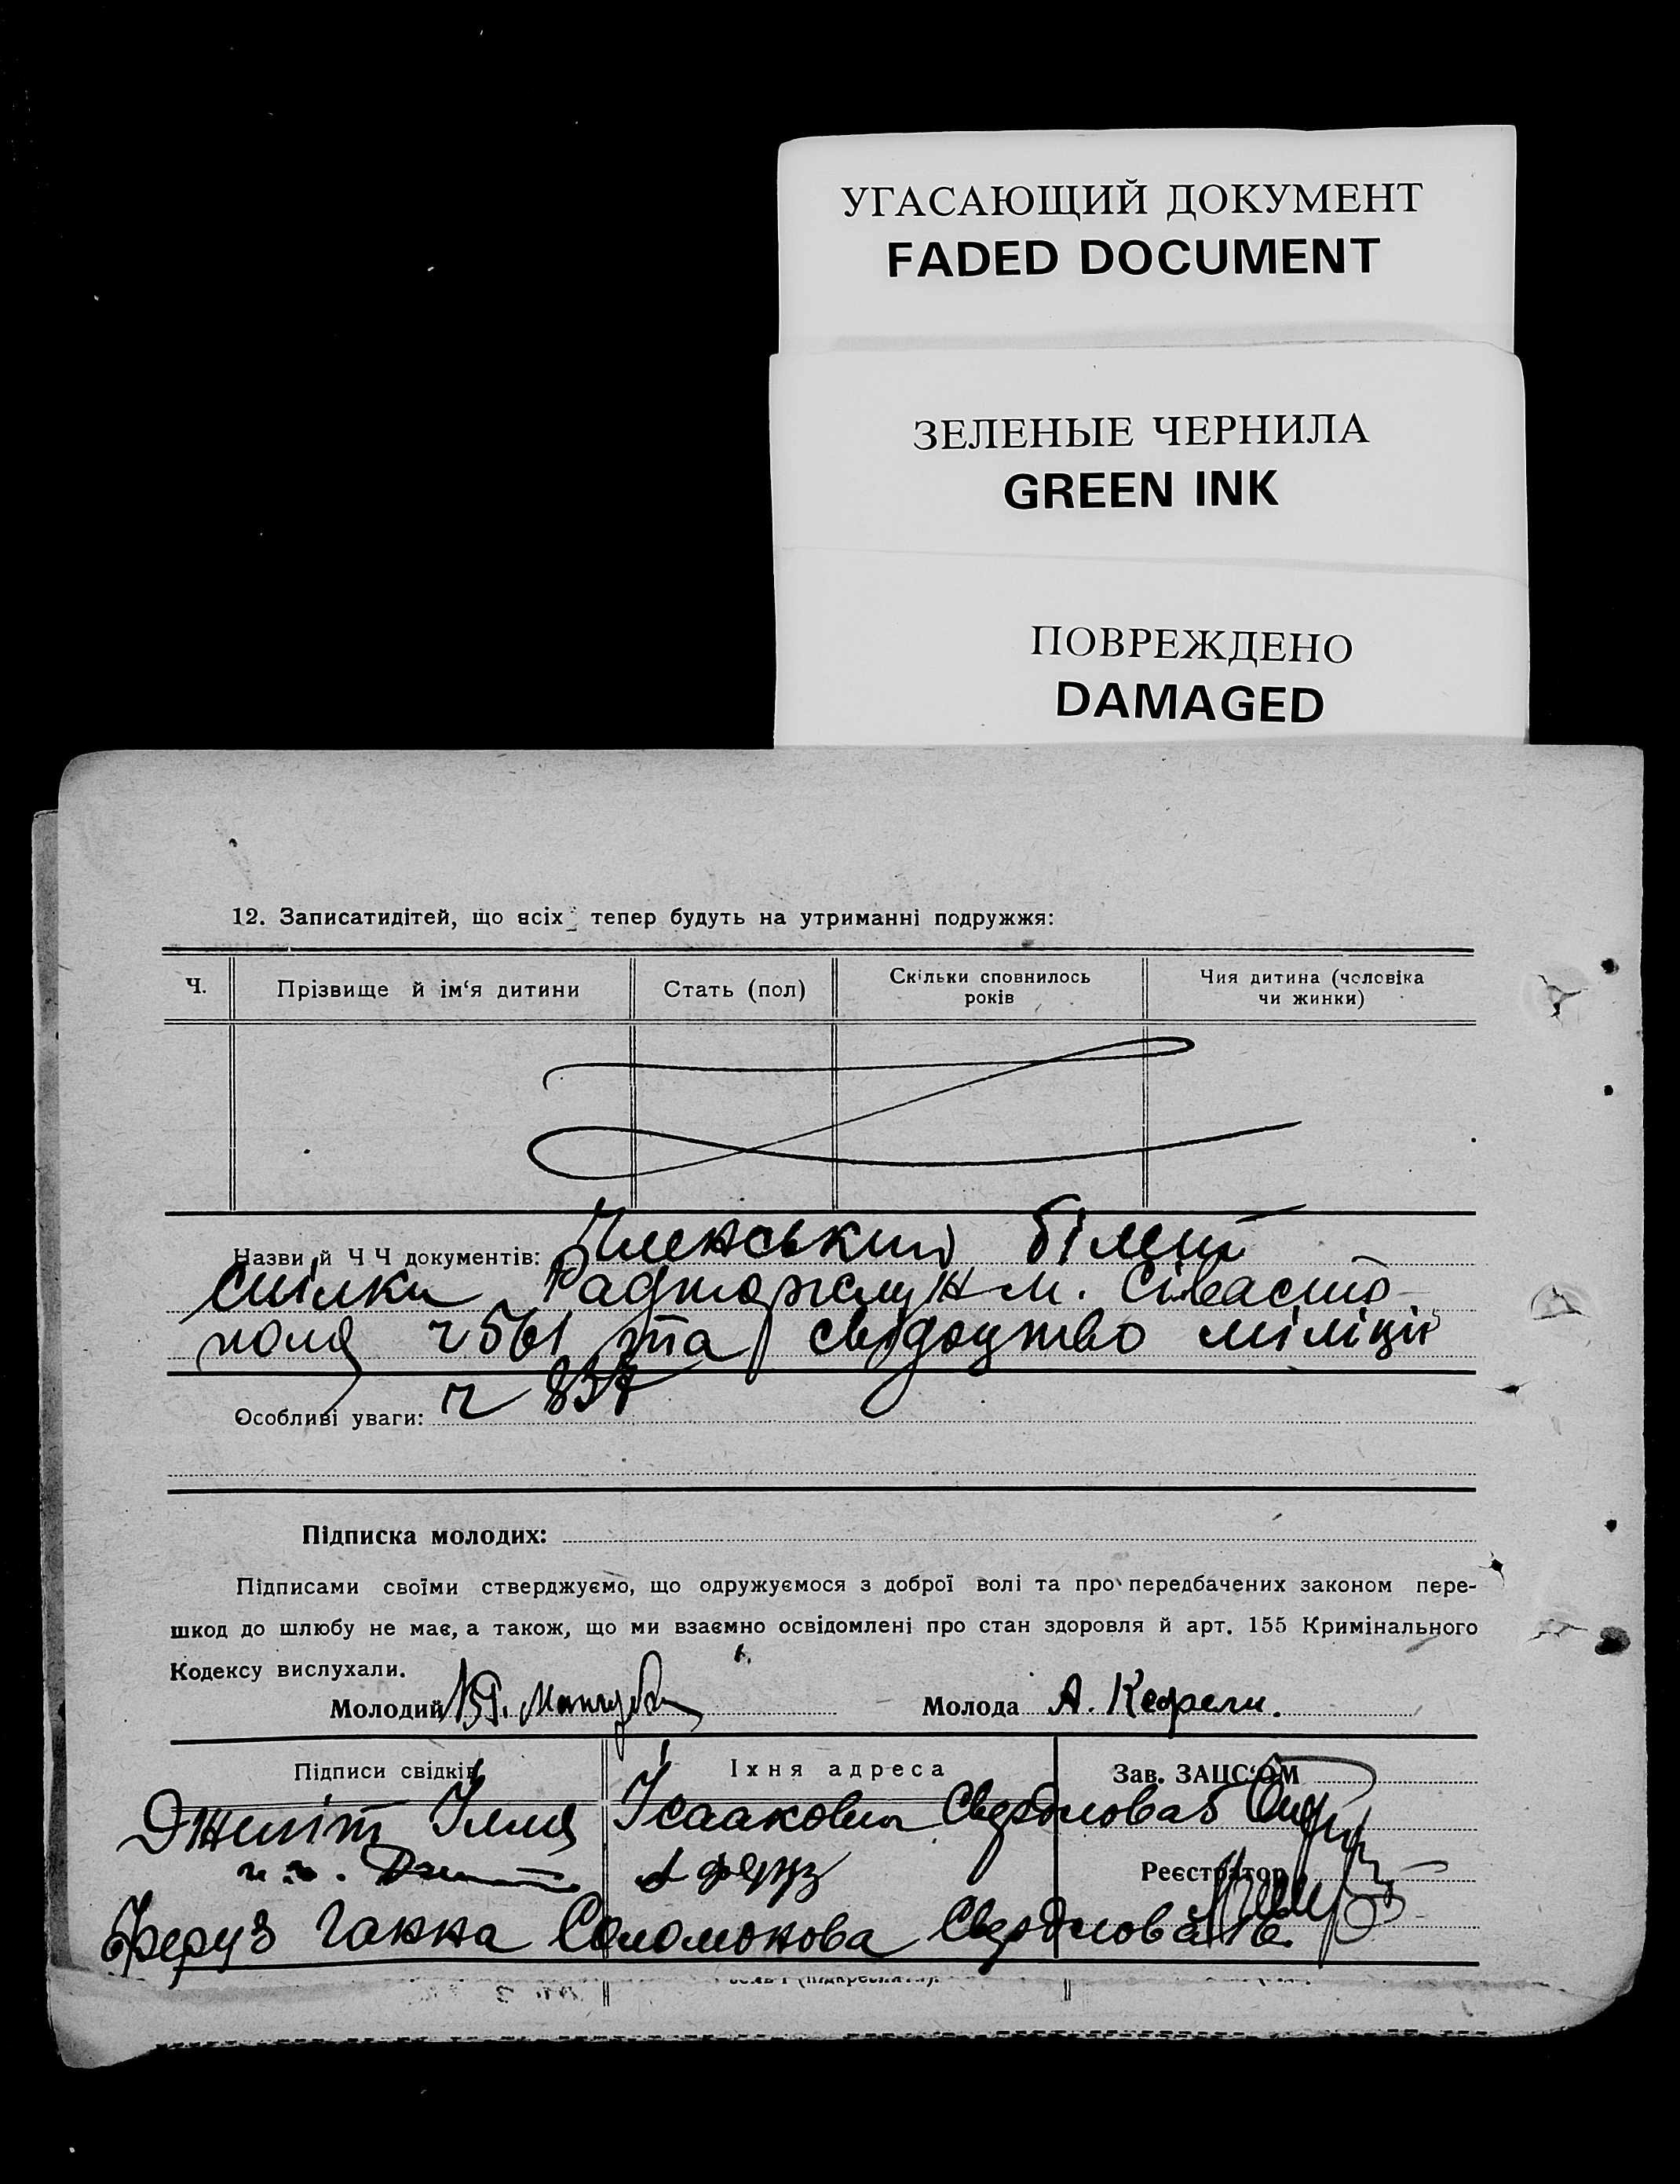 УГАСАЮЩИЙ ДОКУМЕНТ
FADED DOCUMENT
ЗЕЛЕНЫЕ ЧЕРНИЛА
GREEN INK
ПОВРЕЖДЕНО
DAMAGED
12. Записатидітей, що всіх тепер будуть на утриманні подружжя:
Ч. Прізвище й ім‘я дитини Стать (пол) Скільки сповнилось років Чия дитина (чоловіка чи жинки)
Назви й Ч Ч документів: Членський білет
спілки Радторгслуж м. Сівасто
поля ч 561 та свідоцтво міліціи
Особливі уваги: ч 837
Підписка молодих:
Підписами своїми стверджуємо, що одружуємося з доброї волі та про передбачених законом пере-
шкод до шлюбу не має, а також, що ми взаємно освідомлені про стан здоровля й арт. 155 Кримінального
Кодексу вислухали.
Молодий Молода А. Кефели.
Підписи свідків Їхня адреса Зав. ЗАЦС‘ОМ
Джигіт Ілля Ісаакович Свердлова 5
Реєстратор
Феруз Ганна Соломонова Свердлова 16.